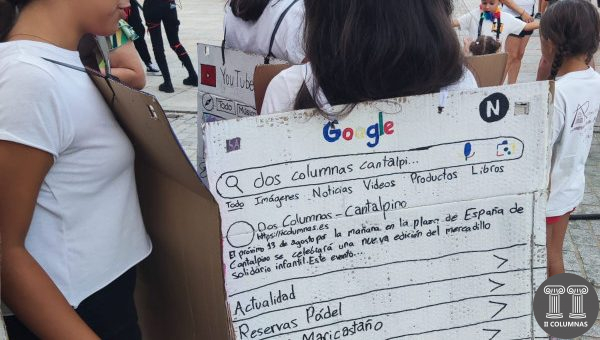 YouTube
Todo Música
Google
N
dos columnas cantalpi...
Todo Imágenes Noticias Videos Productos Libros
Dos Columnas - Cantalpino
https://iicolumnas.es
El próximo 13 de agosto por la mañana en la plaza de España de
Cantalpino se celebrará una nueva edición del mercadillo
solidario infantil. Este evento...
Actualidad
Reservas Pádel
Maricastaño
II COLUMNAS